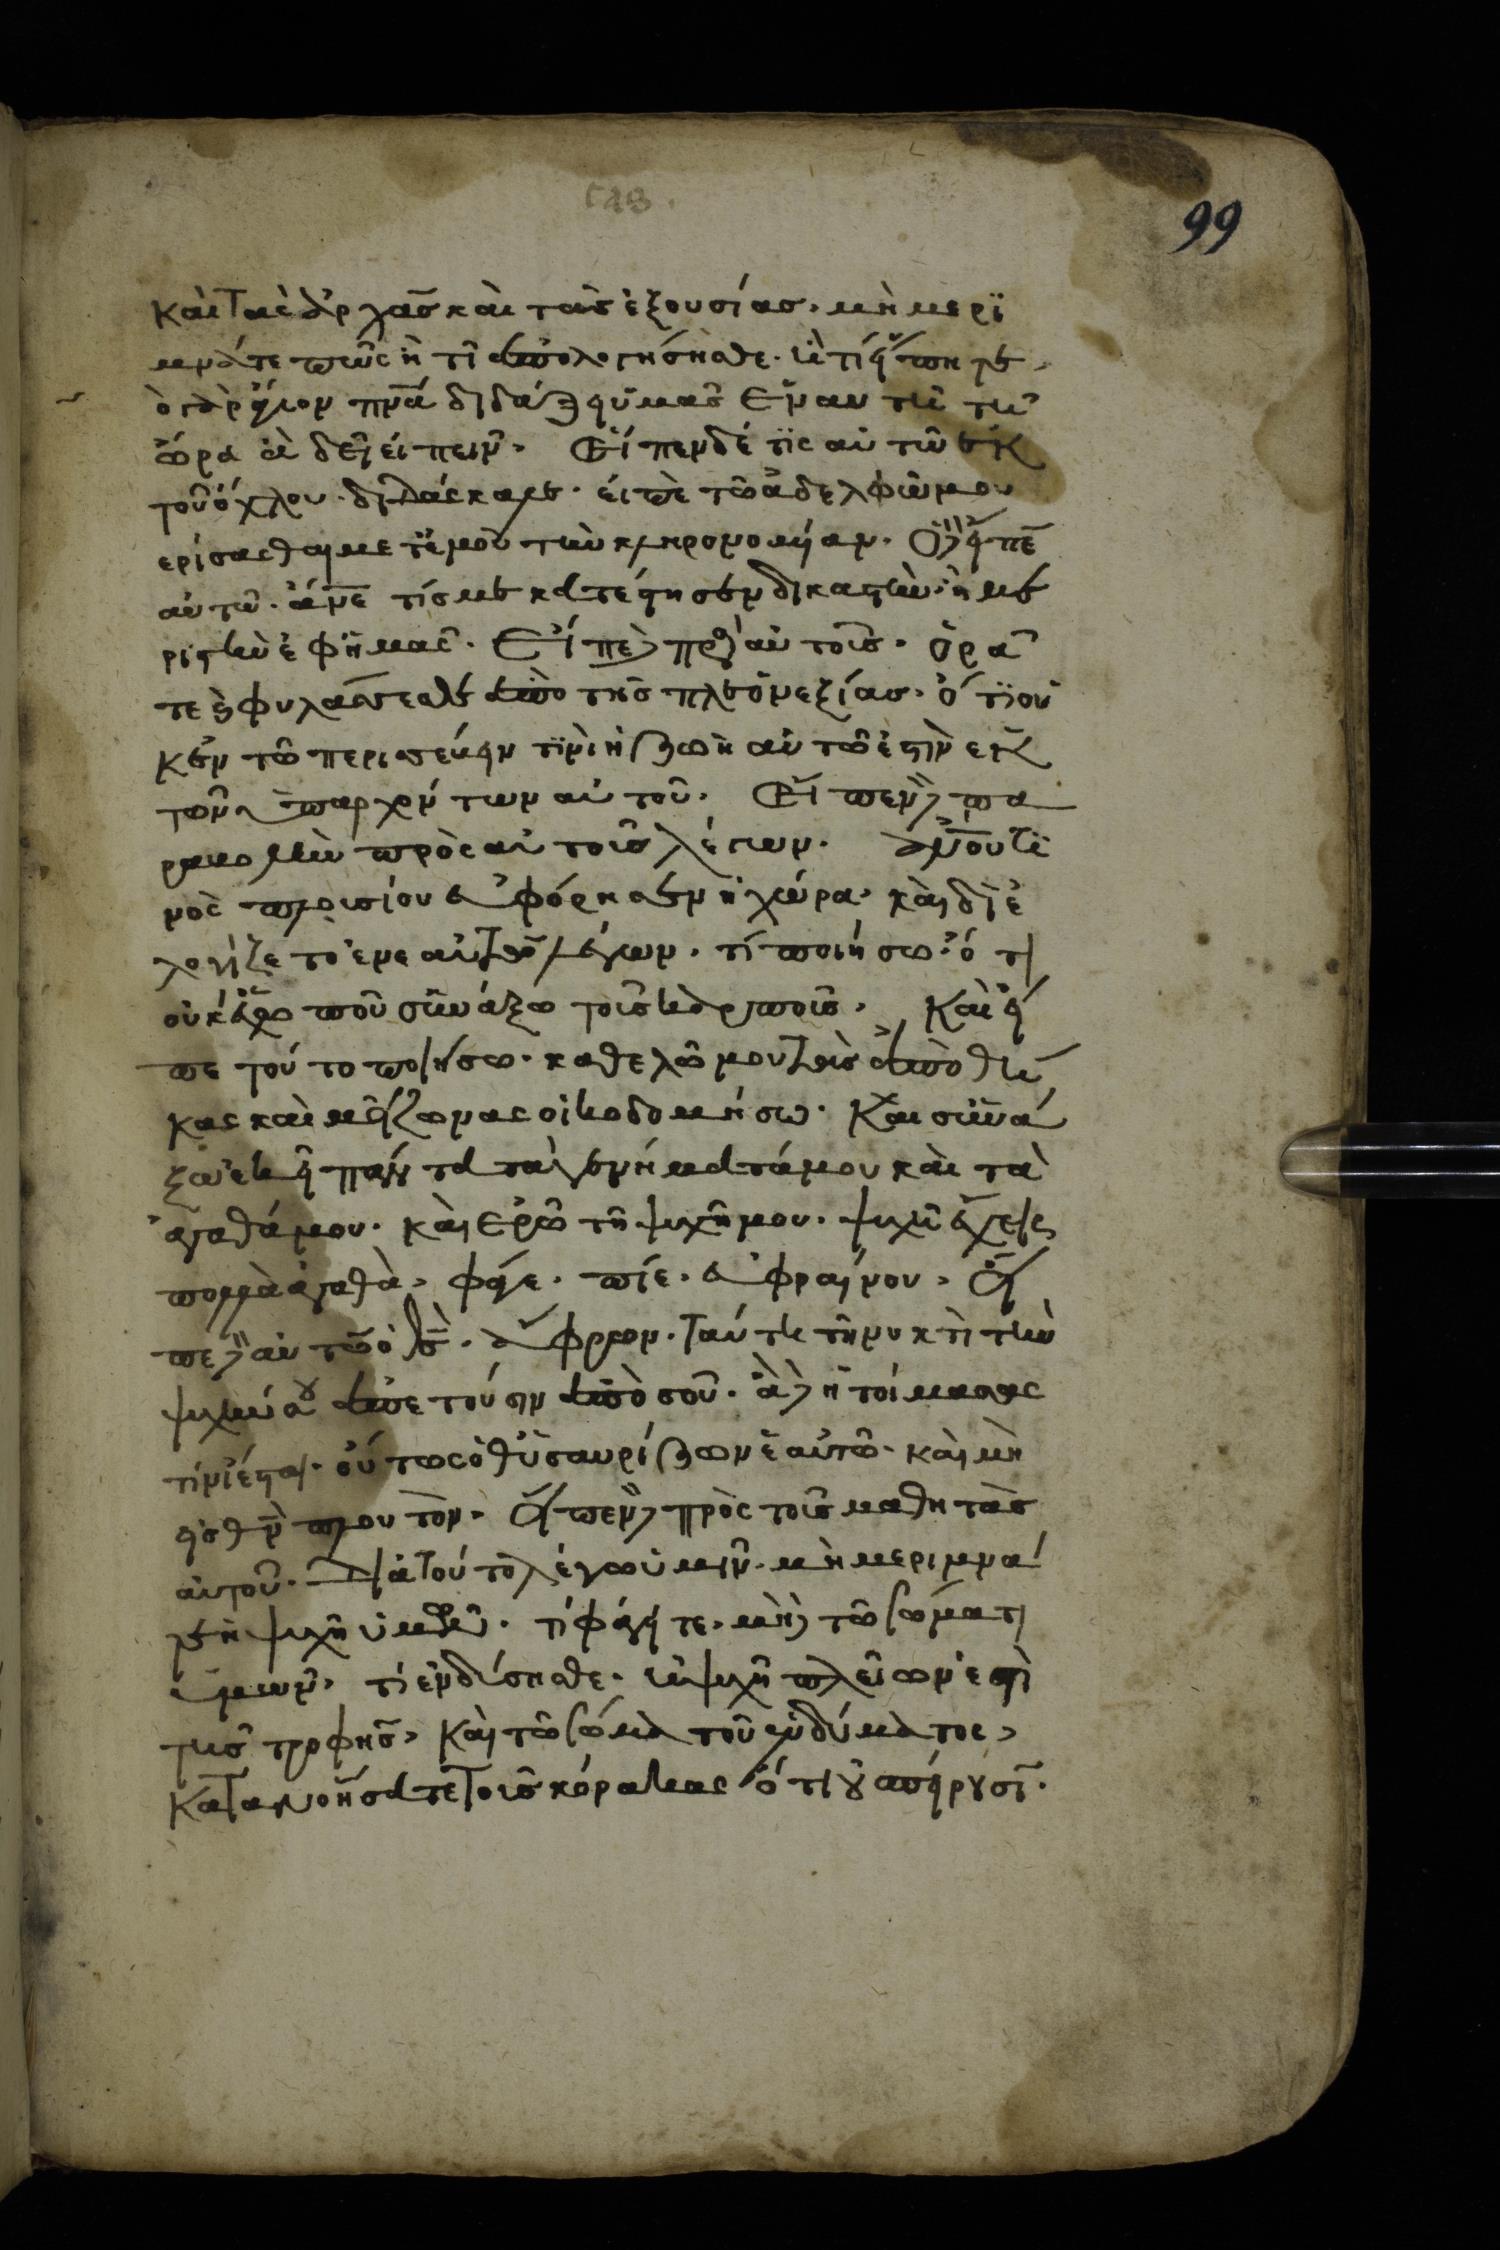 99
καὶ τὰς ἀρχὰς καὶ τὰς ἐξουσίας. μὴ μερι
μνάτε πῶς ἢ τί ἀπολογήσησθε. ἢ τί εἴπητε.
ὁ γὰρ ἅγιον πνᾶ διδάξει ὑμᾶς ἐν αυτῆ τῆ
ὥρα ἃ δεῖ εἰπεῖν. Εἶπεν δέ τις αὐτῶ ἐκ
τοῦ ὄχλου. διδάσκαλε. εἰπὲ τῶ ἀδελφῶ μου
μερίσασθαι μετ' ἐμοῦ τὴν κληρονομίαν. Ὁ δὲ εἶπεν
αὐτῶ. ἄνε τίς με κατέστησεν δικαστὴν ἢ με
ριστὴν ἐφ' ἡμᾶς. Εἶπε δὲ πρὸς αὐτούς. ὁρᾶ
τε καὶ φυλάσσεσθε ἀπὸ τῆς πλεονεξίας. ὅτι οὐ
κ ἐν τῶ περισσεύειν τινὶ ἡ ζωὴ αὐτῶ ἐστὶν ἐκ
τῶν ὑπαρχόντων αὐτοῦ. Εἶπεν δὲ πα
ραβολὴν πρὸς αὐτοὺς λέγων. ἀνου τι
νὸς πλουσίου εὐφόρησεν ἡ χώρα. καὶ διε
λογίζετο ἐν ἑαυτῶ λέγων. τί ποιήσω. ὅτι
οὐκ ἔχω ποῦ συνάξω τοὺς καρπούς. Καὶ εἶ
πε τούτο ποιήσω. καθελῶ μου τὰς ἀποθή
κας καὶ μείζονας οἰκοδομήσω. Καὶ συνά
ξω ἐκεῖ πάντα τὰ γενήματά μου καὶ τὰ
ἀγαθά μου. καὶ ἐρῶ τῆ ψυχῆ μου. ψυχὴ ἔχεις
πολλὰ ἀγαθὰ. φάγε. πίε. εὐφραίνου. Εἶ
πε δὲ αὐτῶ ὁ θς. ἄφρων. ταύτη τῆ νυκτὶ τὴν
ψυχήν σου ἀπετούσιν ἀπὸ σοῦ. ἃ δὲ ἡτοίμασας
τίνι ἔσται. οὕτως ὁ θησαυρίζων ἑαυτῶ. καὶ μὴ
εἰς θν πλουτῶν. Εἶπεν δὲ πρὸς τοὺς μαθητὰς
αὐτοῦ. Διὰ τούτο λέγω ὑμῖν. μὴ μεριμνᾶ
τε τῆ ψυχῆ ὑμῶν. τί φάγητε. μὴ δὲ τῶ σώματι
ὑμῶν. τί ἐνδύσησθε. ἡ ψυχὴ πλεῖων ἐστὶ
τῆς τροφῆς. καὶ τῶ σῶμα τοῦ ἐνδύματος.
Κατανοήσατε τοὺς κόρακας ὅτι οὐ σπείρουσι.